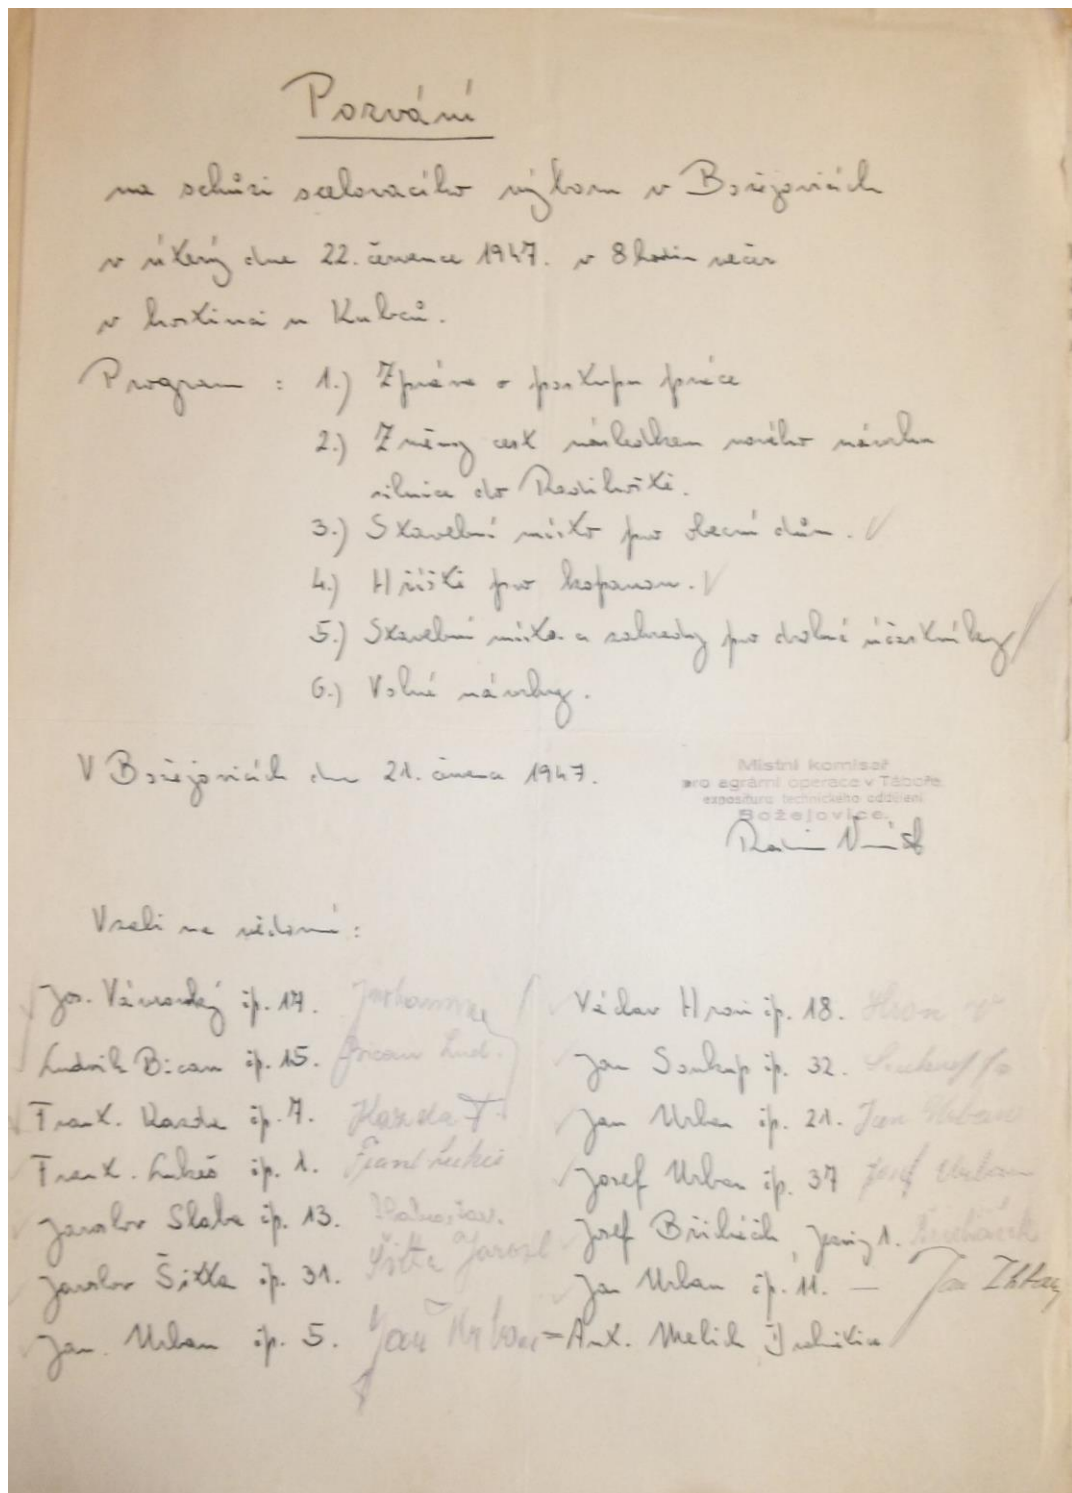 Pozvání
na schůzi scelovacího výboru v Božejovicích
v úterý dne 22. července 1947. v 8 hodin večer
v hostinci u Kubců.
Program : 1.) Zpráva o postupu práce
2.) Změny cest následkem nového návrhu
silnice do Radihoště.
3.) Stavební místo pro obecní dům.
4.) Hřiště pro kopanou.
5.) Stavební místa a zahrady pro drobné účastníky
6.) Volné návrhy.
V Božejovicích dne 21. července 1947.
Místní komisař
pro agrární operace v Táboře
expositura technického oddělení
Božejovice.
Vzali na vědomí :
Jos. Vávrovský čp. 17.
Ludvík Bican čp. 15. Bican Lud.
Frant. Kazda čp. 7. Kazda F.
Frant. Lukeš čp. 1. Frant Lukeš
Jaroslav Slaba čp. 13.
Jaroslav Šitta čp. 31. Šitta Jarosl
Jan Urban čp. 5. Jan Urban
Václav Hron čp. 18. Hron V
Jan Soukup čp. 32.
Jan Urban čp. 21. Jan Urban
Josef Urban čp. 37 Josef Urban
Josef Břicháček, 1. Břicháček
Jan Urban čp. 11. — Jan Urban
= Ant. Melich